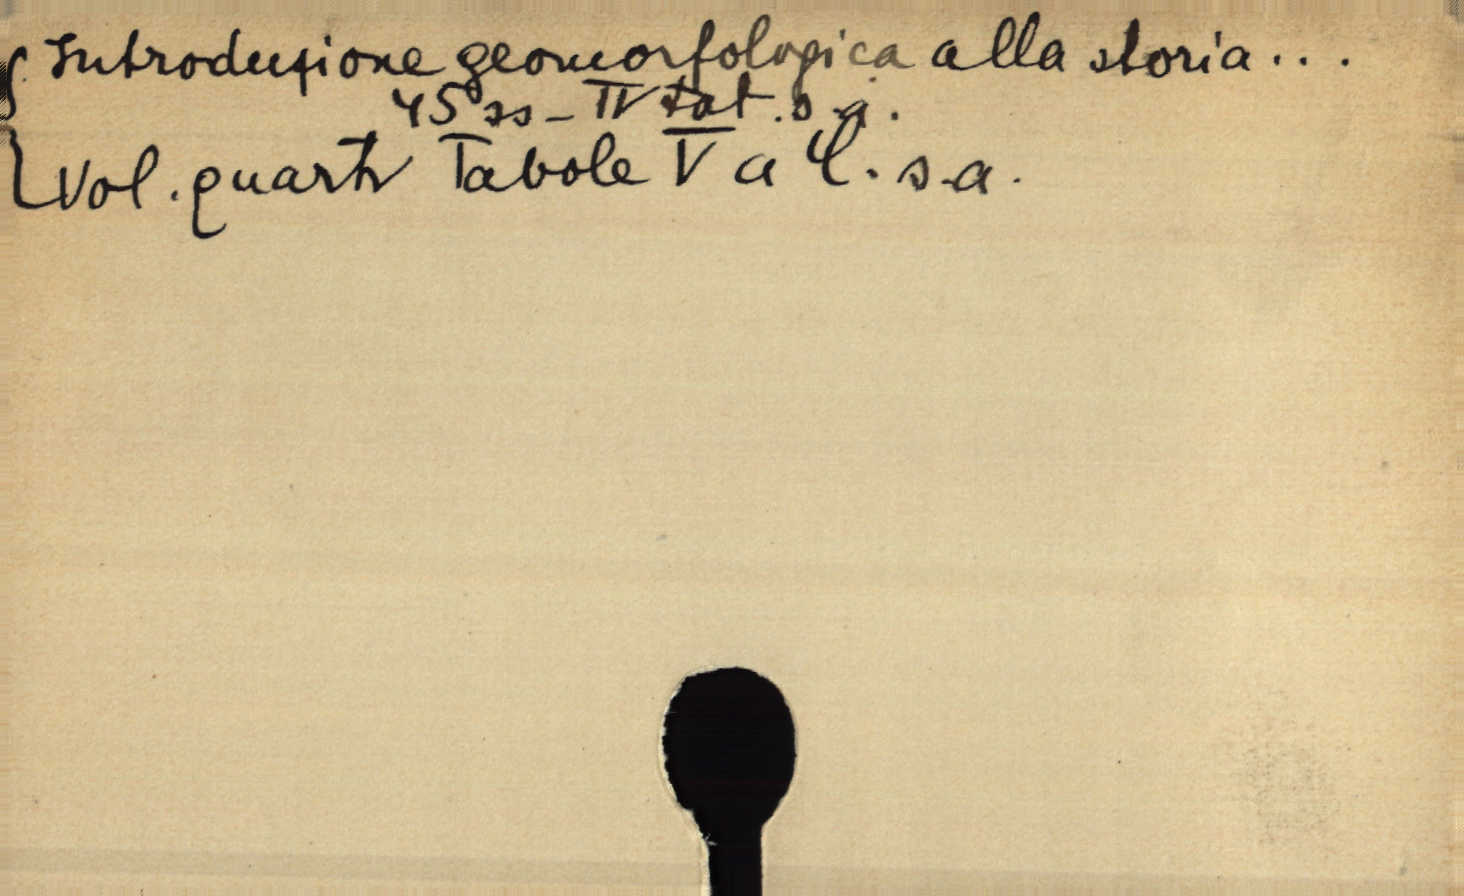 Introduzione geomorfologica alla storia...
45 ss - IV tat. s.a.
Vol. quarto Tavole V a C. s.a.